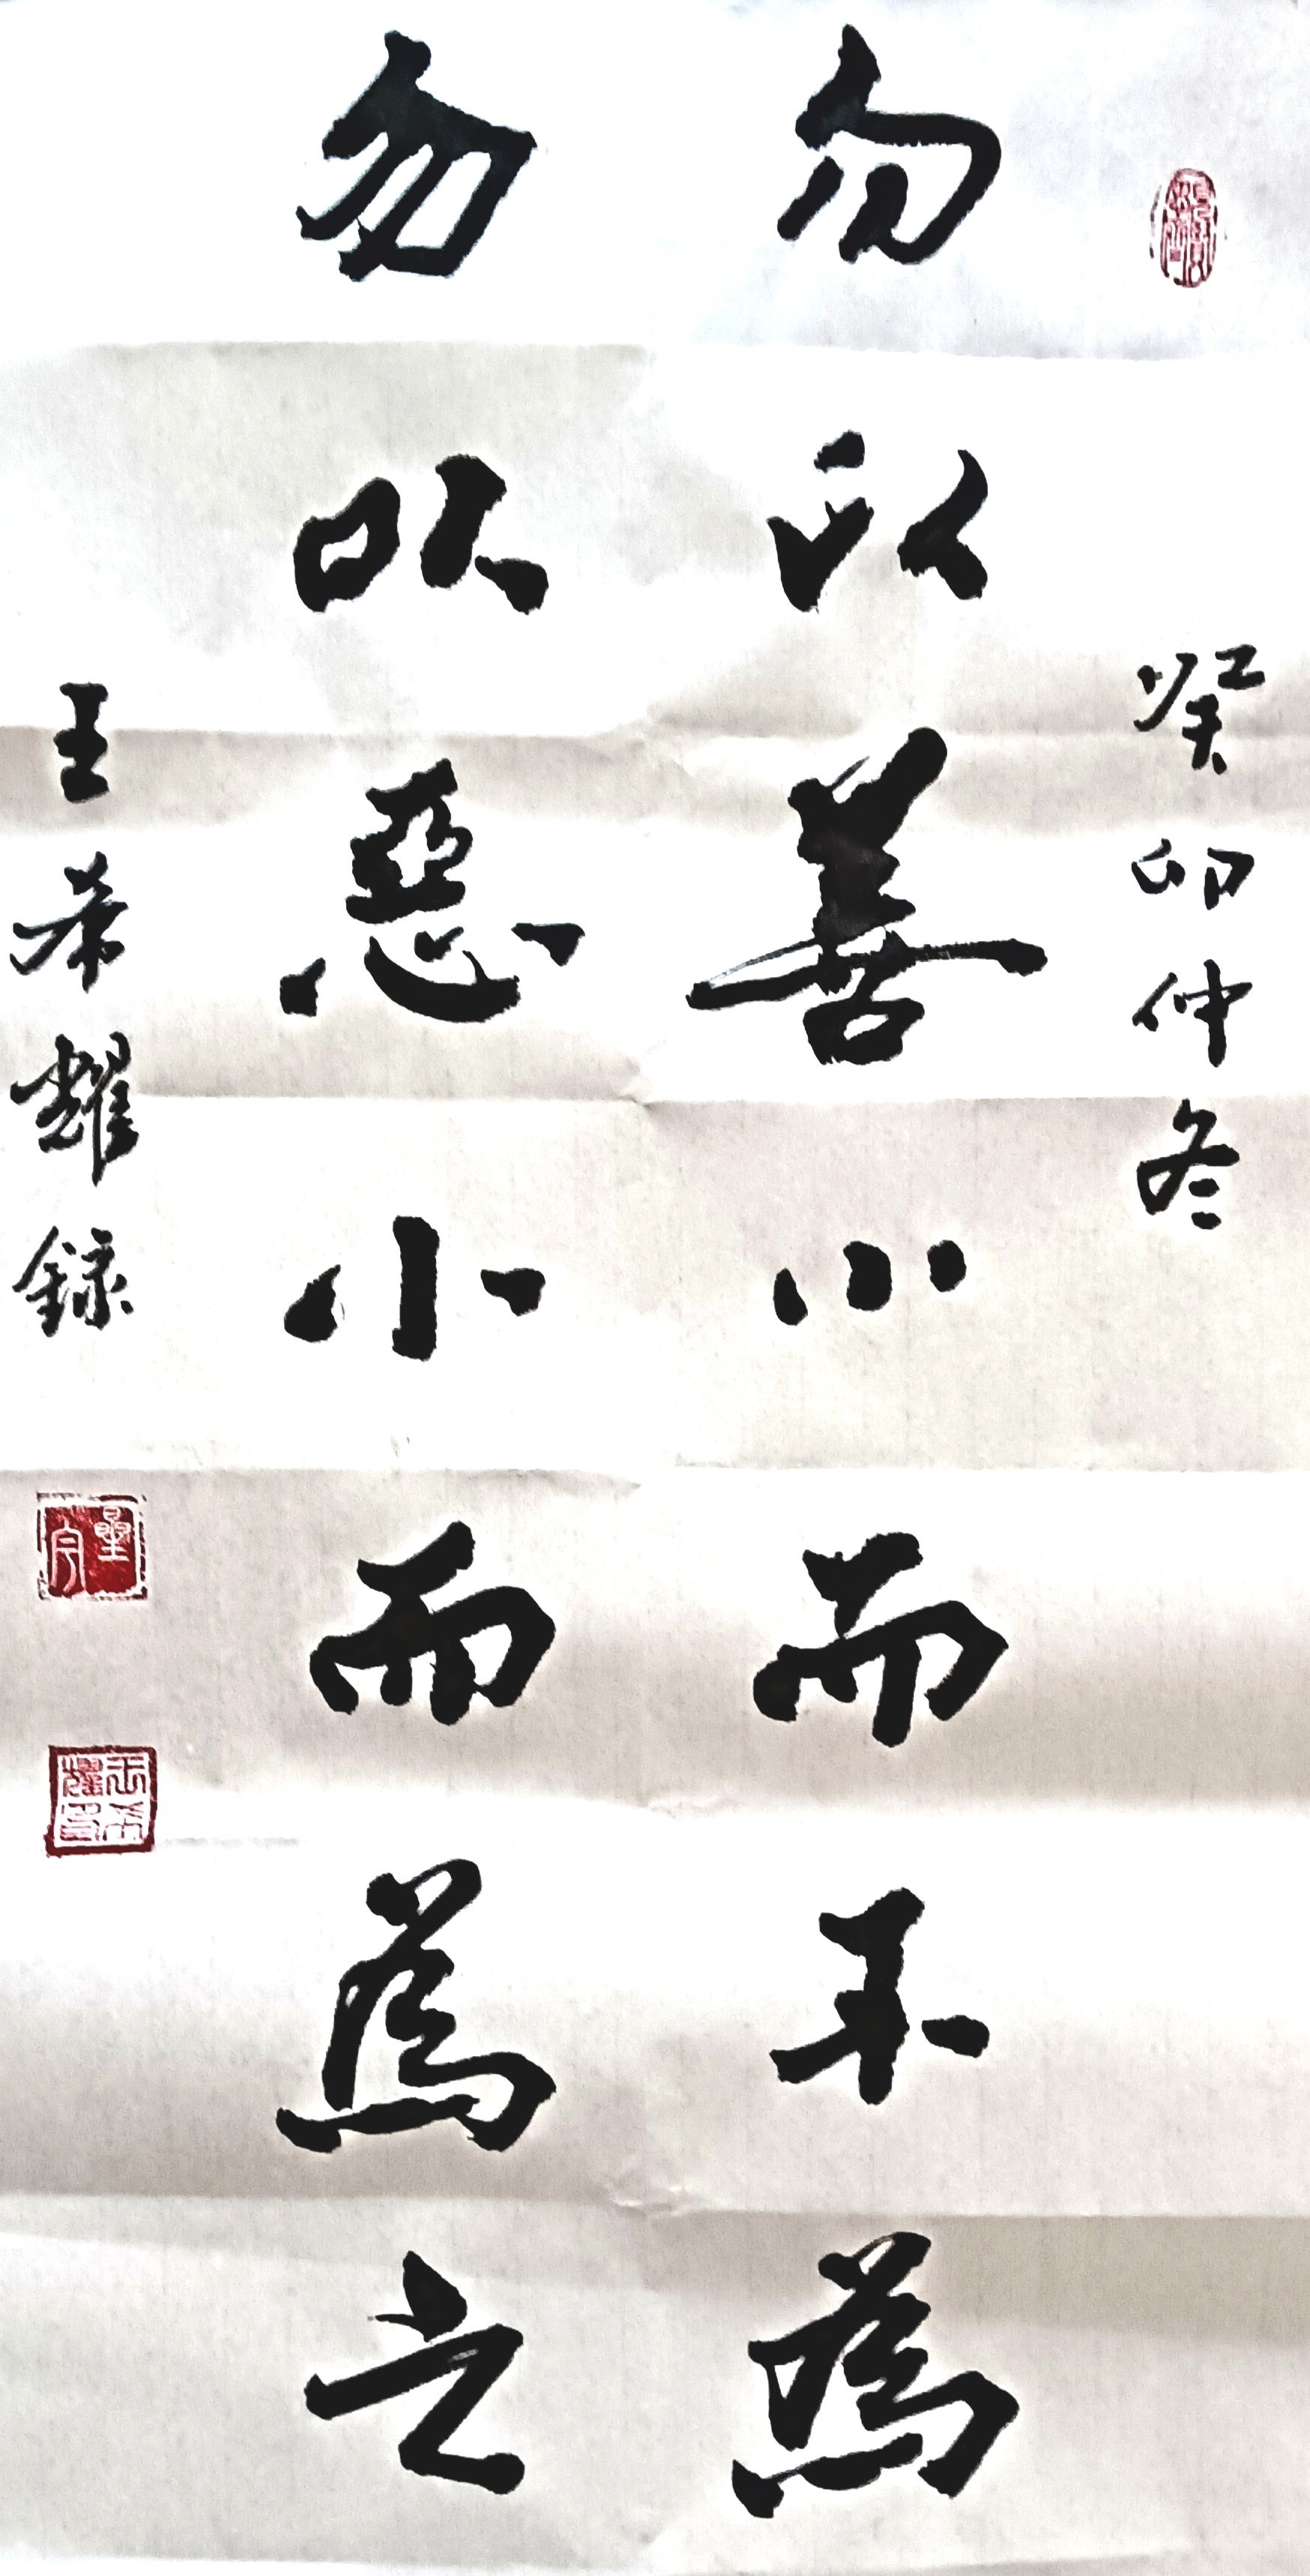 癸卯仲冬
勿以善小而不為
勿以惡小而為之
王希耀錄
王希耀印